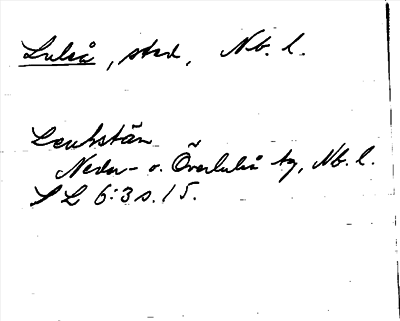 Luleå, stad, Nb. l.
Leukstän
Neder- o. Överluleå tg, Nb. l.
SL 6:3 s. 15.